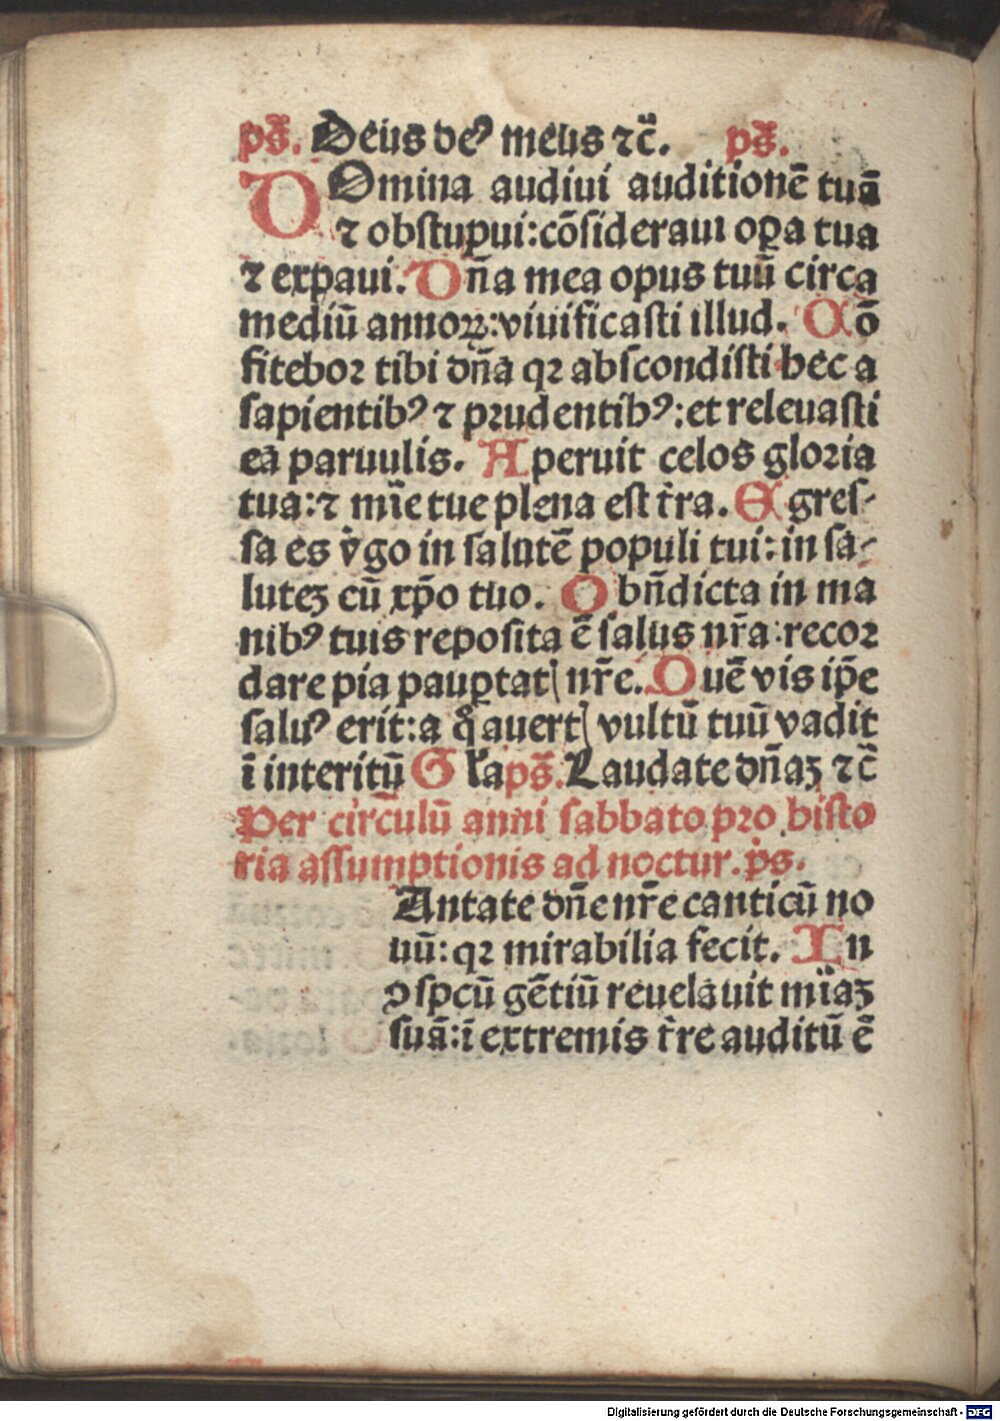 ps̄. Deus deꝰ meus ⁊c̄. ps̄.
DOmina audiui auditionē tuā
⁊ obstupui:cōsideraui oꝑa tua
⁊ expaui. Dn̄a mea opus tuū circa
mediū annoꝝ:viuificasti illud. Cō
fitebor tibi dn̄a qꝛ abscondisti hec a
sapientibꝰ ⁊ prudentibꝰ:et releuasti
ea paruulis. Aperuit celos gloria
tua:⁊ mīe tue plena est t̄ra. Egres⸗
sa es v̄go in salutē populi tui:in sa⸗
luteꝫ cū xp̄o tuo. O bn̄dicta in ma
nibꝰ tuis reposita ē salus nr̄a:recor
dare pia pauꝑtatꝭ nr̄e. Quē vis ip̄e
saluꝰ erit:a q̊ auertꝭ vultū tuū vadit
ī interitū Gl'a ps̄. Laudate dn̄aꝫ ⁊c̄
Per circulū anni sabbato pro histo
ria assumptionis ad noctur. ps̄.
Antate dn̄e nr̄e canticū no
uū:qꝛ mirabilia fecit. In
ꝯspcū gētiū reuelauit mīaꝫ
suā:ī extremis t̄re auditū ē
Digitalisierung gefördert durch die Deutsche Forschungsgemeinschaft - DFG